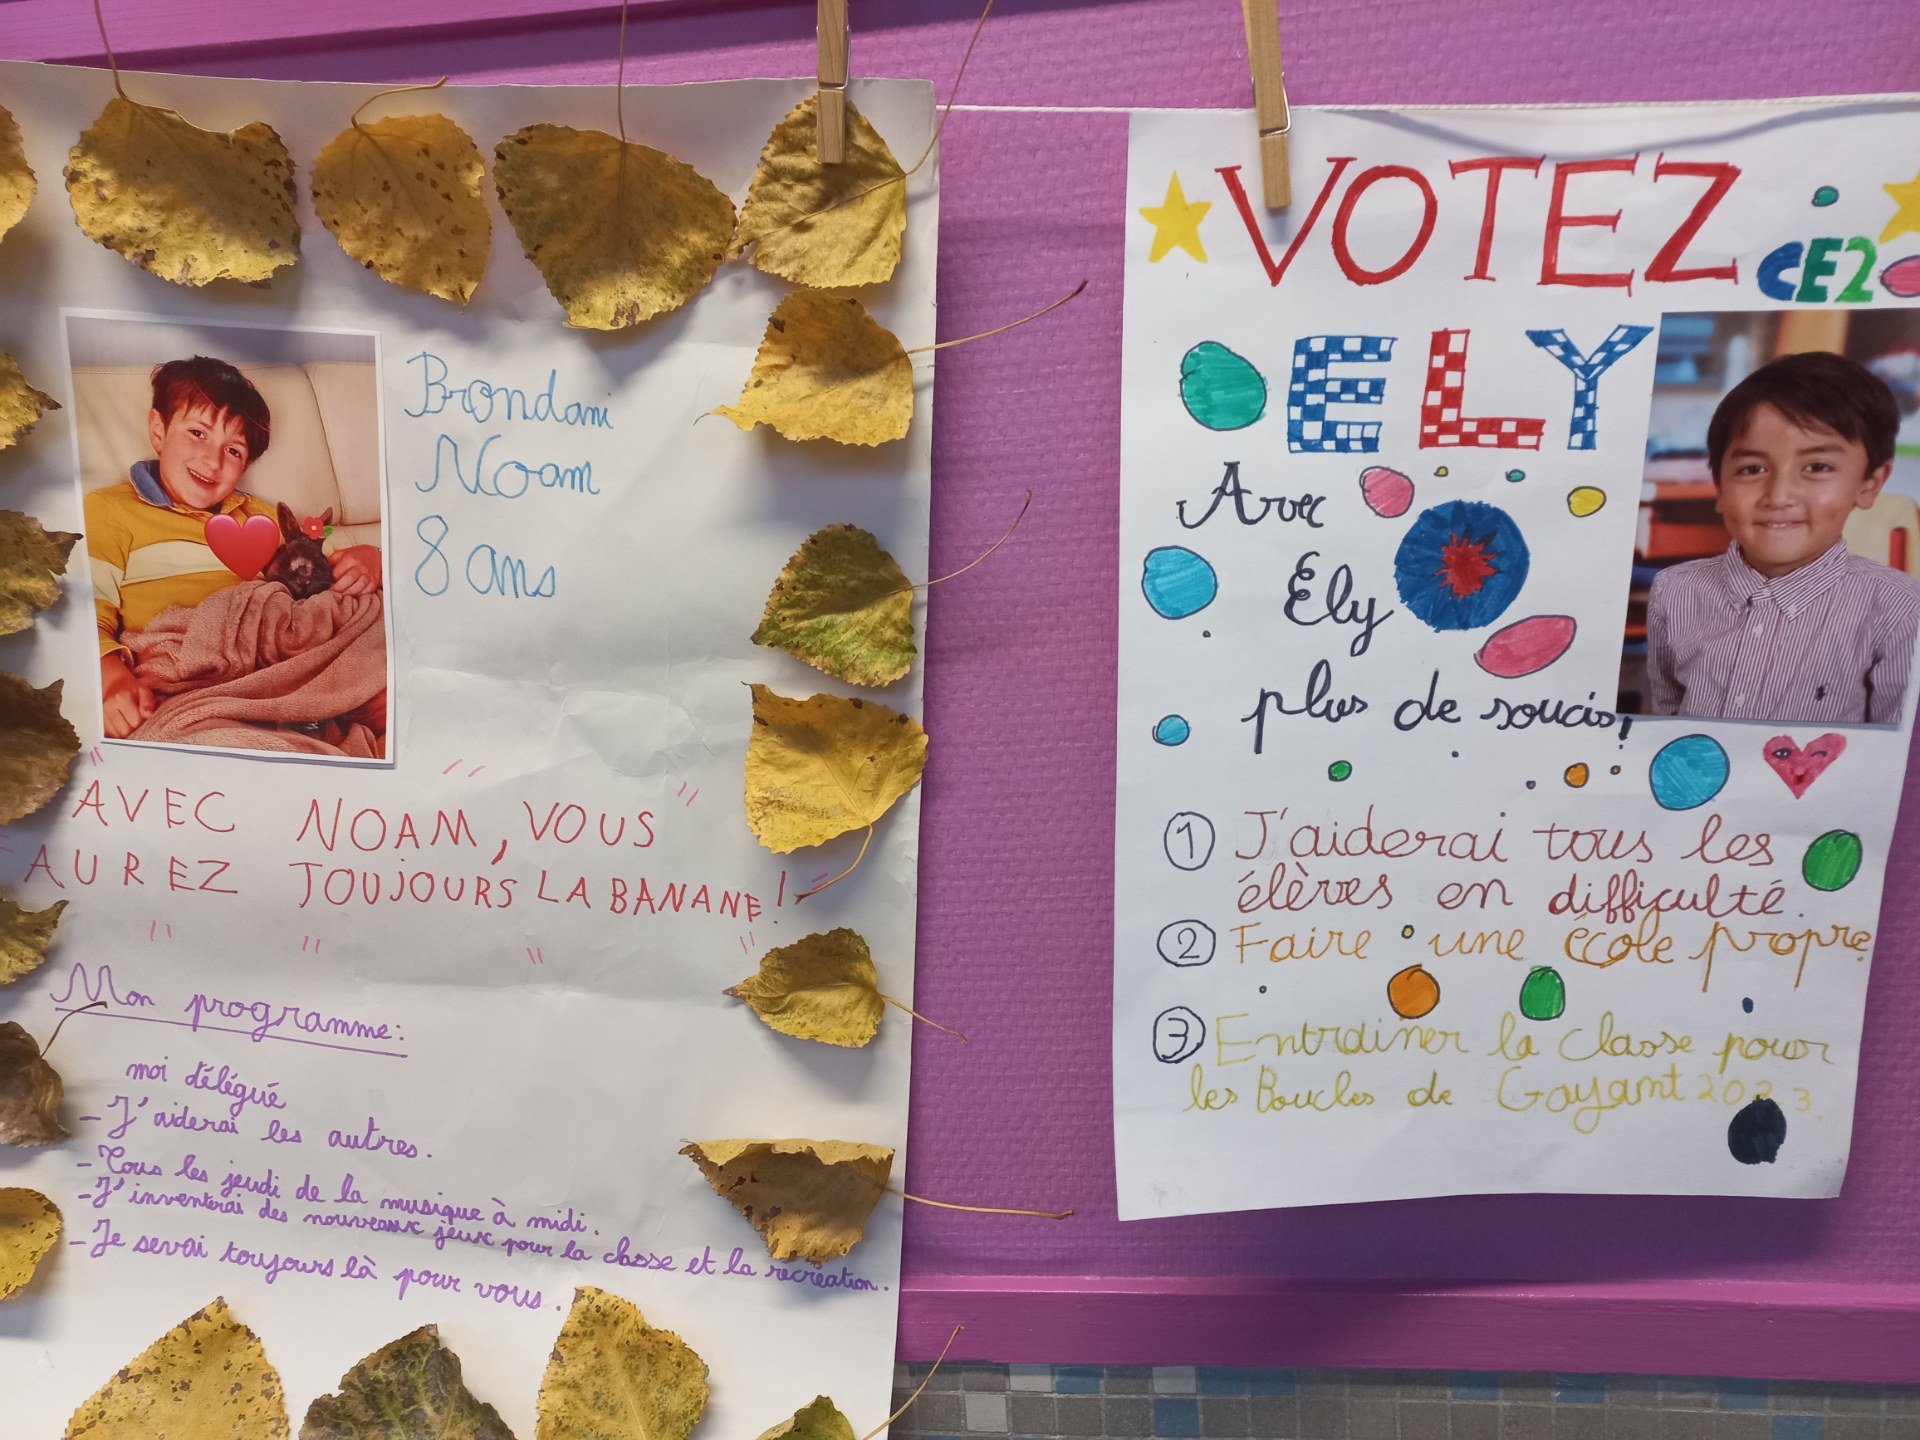 Brondani
Noam
8 ans
"AVEC NOAM, VOUS
AUREZ TOUJOURS LA BANANE!"
Mon programme:
moi délégué
- J'aiderai les autres.
- Tous les jeudi de la musique à midi.
- J'inventerai des nouveaux jeux pour la classe et la recréation.
- Je serai toujours là pour vous.
VOTEZ
CE2
ELY
Avec
Ely
plus de soucis!
1 J'aiderai tous les
élèves en difficulté.
2 Faire une école propre
3 Entrainer la classe pour
les Boucles de Gayant 2023.